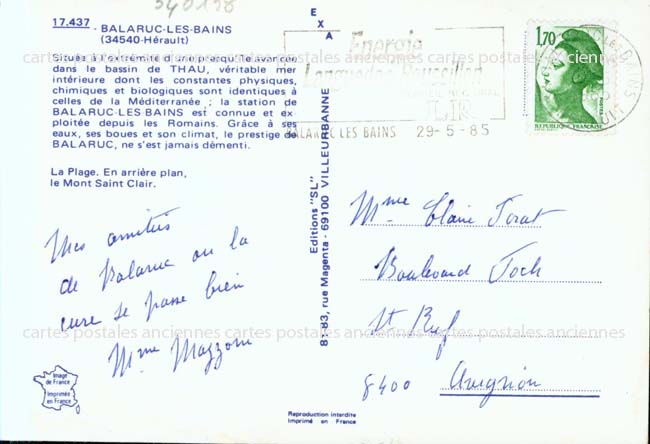 340138
17.437
- BALARUC-LES-BAINS
(34540-Hérault)
Située à l'extrémité d'une presqu'île avancée
dans le bassin de THAU, véritable mer
intérieure dont les constantes physiques,
chimiques et biologiques sont identiques à
celles de la Méditerranée ; la station de
BALARUC-LES-BAINS est connue et ex-
ploitée depuis les Romains. Grâce à ses
eaux, ses boues et son climat, le prestige de
BALARUC, ne s'est jamais démenti.
La Plage. En arrière plan,
le Mont Saint Clair.
Mes amitiés
de Balaruc ou la
cure se passe bien
Mme Mazzoni
Image
de France
Imprimée
en France
EXA
Editions "SL"
81-83, rue Magenta - 69100 VILLEURBANNE
Reproduction interdite
Imprimé en France
Energie
Languedoc Roussillon
BALARUC LES BAINS 29-5-85
1,70
REPUBLIQUE FRANÇAISE
Mme Claire Torat
Boulevard Foch
St Ruf
8400 Avignon
cartes postales anciennes cartes postales anciennes cartes postales anciennes